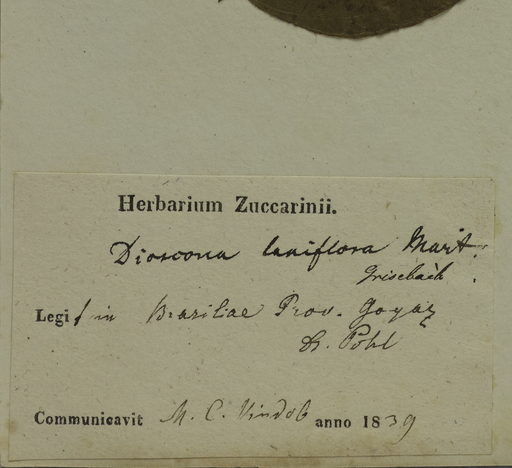 Herbarium Zuccarinii.
Dioscorea laxiflora Mart.
Grisebach.
Legit in Brasiliae Prov. Goyaz
Dr. Pohl
Communicavit M. C. Vindob anno 1839